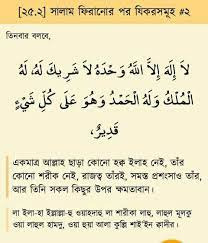 [২৫.২] সালাম ফিরানোর পর যিকরসমূহ #২
তিনবার বলবে,
لَا إِلَهَ إِلَّا اللَّهُ وَحْدَهُ لَا شَرِيكَ لَهُ، لَهُ
الْمُلْكُ وَلَهُ الْحَمْدُ وَهُوَ عَلَى كُلِّ شَيْءٍ
قَدِيرٌ،
একমাত্র আল্লাহ ছাড়া কোনো হক্ব ইলাহ নেই, তাঁর
কোনো শরীক নেই, রাজত্ব তাঁরই, সমস্ত প্রশংসাও তাঁর,
আর তিনি সকল কিছুর উপর ক্ষমতাবান।
লা ইলা-হা ইল্লাল্লা-হু ওয়াহদাহু লা শারীকা লাহু, লাহুল মুলকু
ওয়া লাহুল হামদু, ওয়া হুয়া আলা কুল্লি শাই'ইন ক্বাদীর।